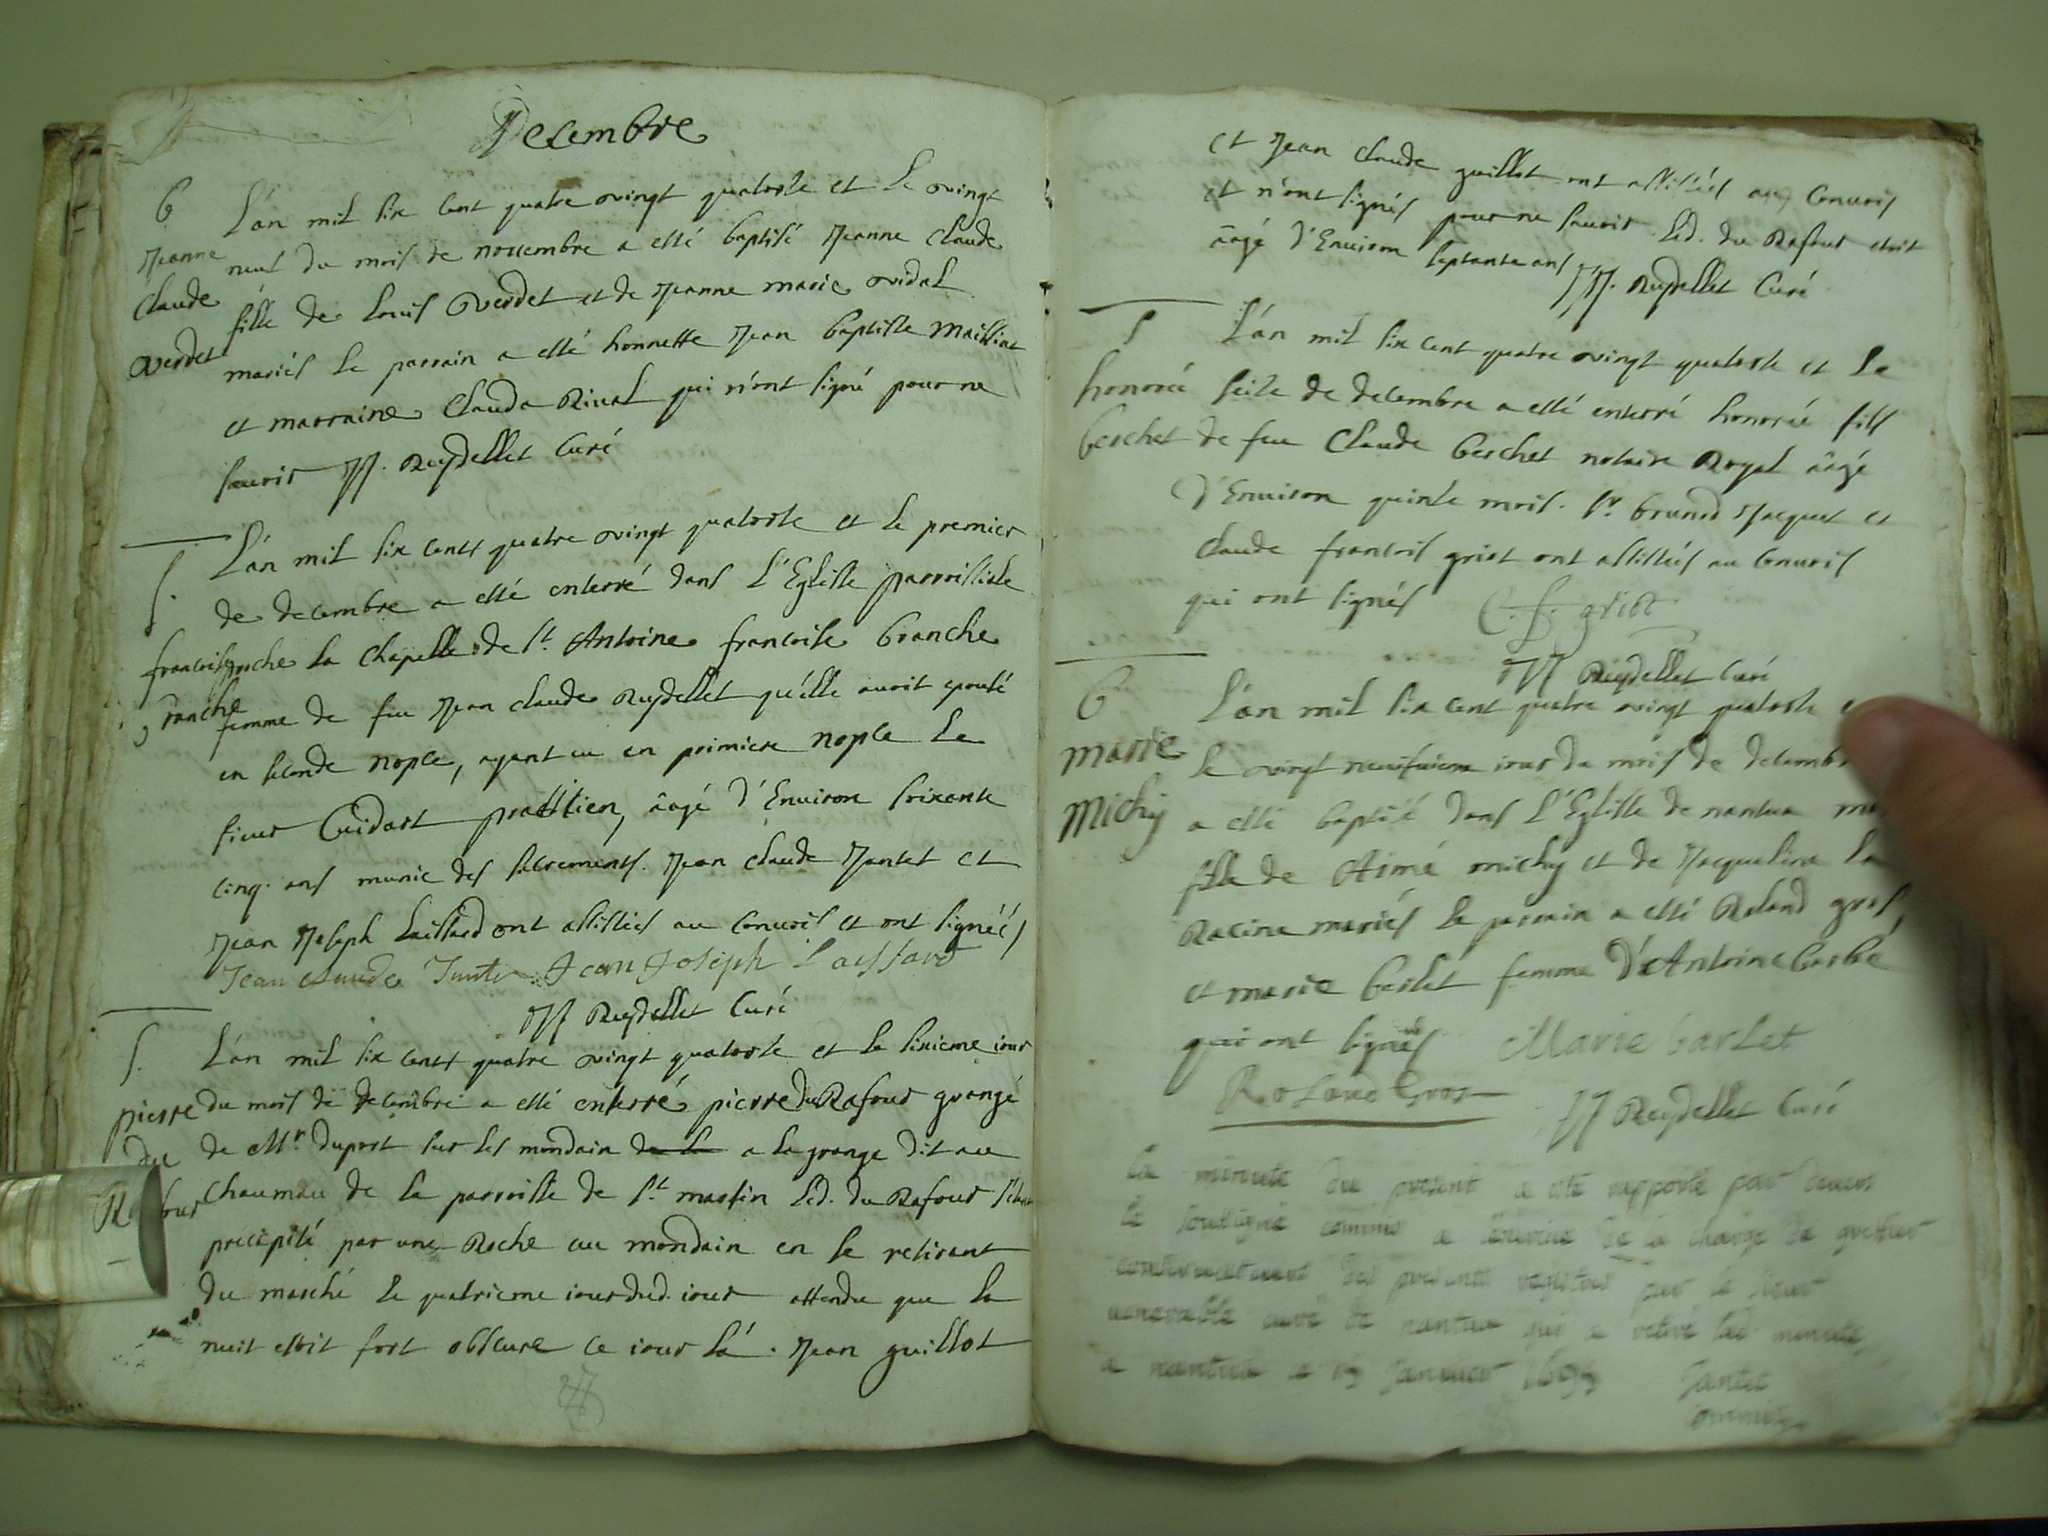 Decembre
B
Jeanne
Claude
Verdet
L'an mil six cent quatre vingt quatorse et le vingt
neuf du mois de novembre a esté baptisé Jeanne Claude
fille de Louis Verdet et de Jeanne marie vidal
mariés le parrain a esté honnette Jean baptiste Maissiat
et marraine Claude Rival qui n'ont signé pour ne
savoir JJ. Reydellet Curé
S.
francoise
branche
L'an mil six cents quatre vingt quatorse et le premier
de decembre a esté enterré dans l'Eglisse parroissiale
proche la chapelle de St. Antoine francoise branche
femme de feu Jean claude Reydellet qu'elle avoit epousé
en seconde nopce, ayant eu en primiere nopce le
sieur Cuidart pratitien, âagé d'Environ soixente
cinq ans munie des sacrements. Jean claude Jantet et
Jean Joseph Laissard ont assistés au convois et ont signéés
Jean claude Jantet Jean Joseph Laissard
JJ Reydellet Curé
S.
pierre
du
Rafour
L'an mil six cents quatre vingt quatorse et le sixieme iour
du mois de decembre a esté enterré pierre du Rafour grangé
de Mr. duport sur les mondain de la a la grange dit au
Chaumau de la parroisse de St. martin led. du Rafour
precipité par une Roche au mondain en se retirant
du marché le quatrieme iour dud. iour attendu que la
nuit estoit fort obscure ce iour là. Jean guillot
et Jean claude guillot ont assistés aux convois
et n'ont signés pour ne savoir. led. du Rafour etoit
âagé d'Environ septante ans JJ. Reydellet Curé
S
honoré
berchet
L'an mil six cent quatre vingt quatorse et le
seize de decembre a esté enterré honoré fils
de feu Claude berchet notaire Royal âagé
d'Environ quinze mois. Sr. brunod Jacquet et
claude francois griot ont assistés au convois
qui ont signés C. f. griot
JJ Reydellet Curé
B
marie
Michy
L'an mil six cent quatre vingt quatorse
le vingt neufvieme iour du mois de decembre
a esté baptisé dans l'Eglisse de nantua
fille de Aimé michy et de Jacqueline la
Racine mariés le parrain a esté Roland gros,
et marie barlet femme d'Antoine barbé
qui ont signés Marie barlet
Roland Gros
JJ Reydellet Curé
La minute du present a eté rapporté par devant
le soubsigné commis a l'exercice de la charge de greffier
conservateur des presents registres par le sieur
venerable curé de nantua qui a retiré lad. minute,
a nantua ce 19 Janvier 1695 Jantet
commis